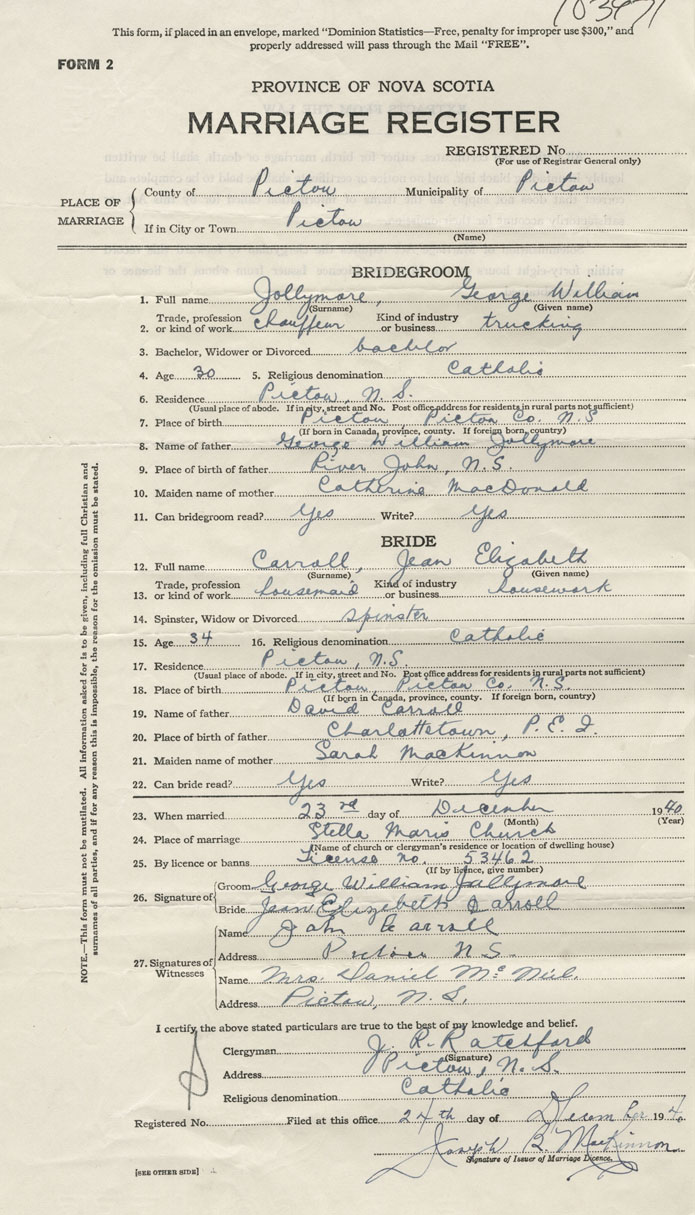 This form, if placed in an envelope, marked "Dominion Statistics—Free, penalty for improper use $300," and
properly addressed will pass through the Mail "FREE".
FORM 2
PROVINCE OF NOVA SCOTIA
MARRIAGE REGISTER
REGISTERED No.
(For use of Registrar General only)
PLACE OF MARRIAGE
County of Pictou Municipality of Pictou
If in City or Town Pictou
(Name)
BRIDEGROOM
1. Full name Jollymore, George William
(Surname) (Given name)
2. Trade, profession or kind of work chauffeur Kind of industry or business trucking
3. Bachelor, Widower or Divorced bachlor
4. Age 30 5. Religious denomination Catholic
6. Residence Pictou, N.S.
(Usual place of abode. If in city, street and No. Post office address for residents in rural parts not sufficient)
7. Place of birth Pictou Pictou Co. N.S
(If born in Canada, province, county. If foreign born, country)
8. Name of father George William Jollymore
9. Place of birth of father River John, N.S.
10. Maiden name of mother Catherine MacDonald
11. Can bridegroom read? Yes Write? Yes
BRIDE
12. Full name Carroll, Jean Elizabeth
(Surname) (Given name)
13. Trade, profession or kind of work housemaid Kind of industry or business housework
14. Spinster, Widow or Divorced spinster
15. Age 34 16. Religious denomination Catholic
17. Residence Pictou, N.S.
(Usual place of abode. If in city, street and No. Post office address for residents in rural parts not sufficient)
18. Place of birth Pictou, Pictou Co. N.S.
(If born in Canada, province, county. If foreign born, country)
19. Name of father David Carroll
20. Place of birth of father Charlattetown, P.E.I.
21. Maiden name of mother Sarah MacKinnon
22. Can bride read? Yes Write? Yes
23. When married 23rd day of December 1940
(Month) (Year)
24. Place of marriage Stella Maris Church
(Name of church or clergyman's residence or location of dwelling house)
25. By licence or banns License no. 53462
(If by licence, give number)
26. Signature of
Groom George William Jollymore
Bride Jean Elizebeth Carroll
27. Signatures of Witnesses
Name John Carroll
Address Pictou N S.
Name Mrs. Daniel McNeil.
Address Pictou, N.S.
I certify the above stated particulars are true to the best of my knowledge and belief.
Clergyman J. R. Ratchford
(Signature)
Address Pictou, N.S.
Religious denomination Catholic
Registered No. Filed at this office 24th day of December 194
Joseph B. MacKinnon
Signature of Issuer of Marriage Licence.
[SEE OTHER SIDE]
NOTE.—This form must not be mutilated. All information asked for is to be given, including full Christian and
surnames of all parties, and if for any reason this is impossible, the reason for the omission must be stated.